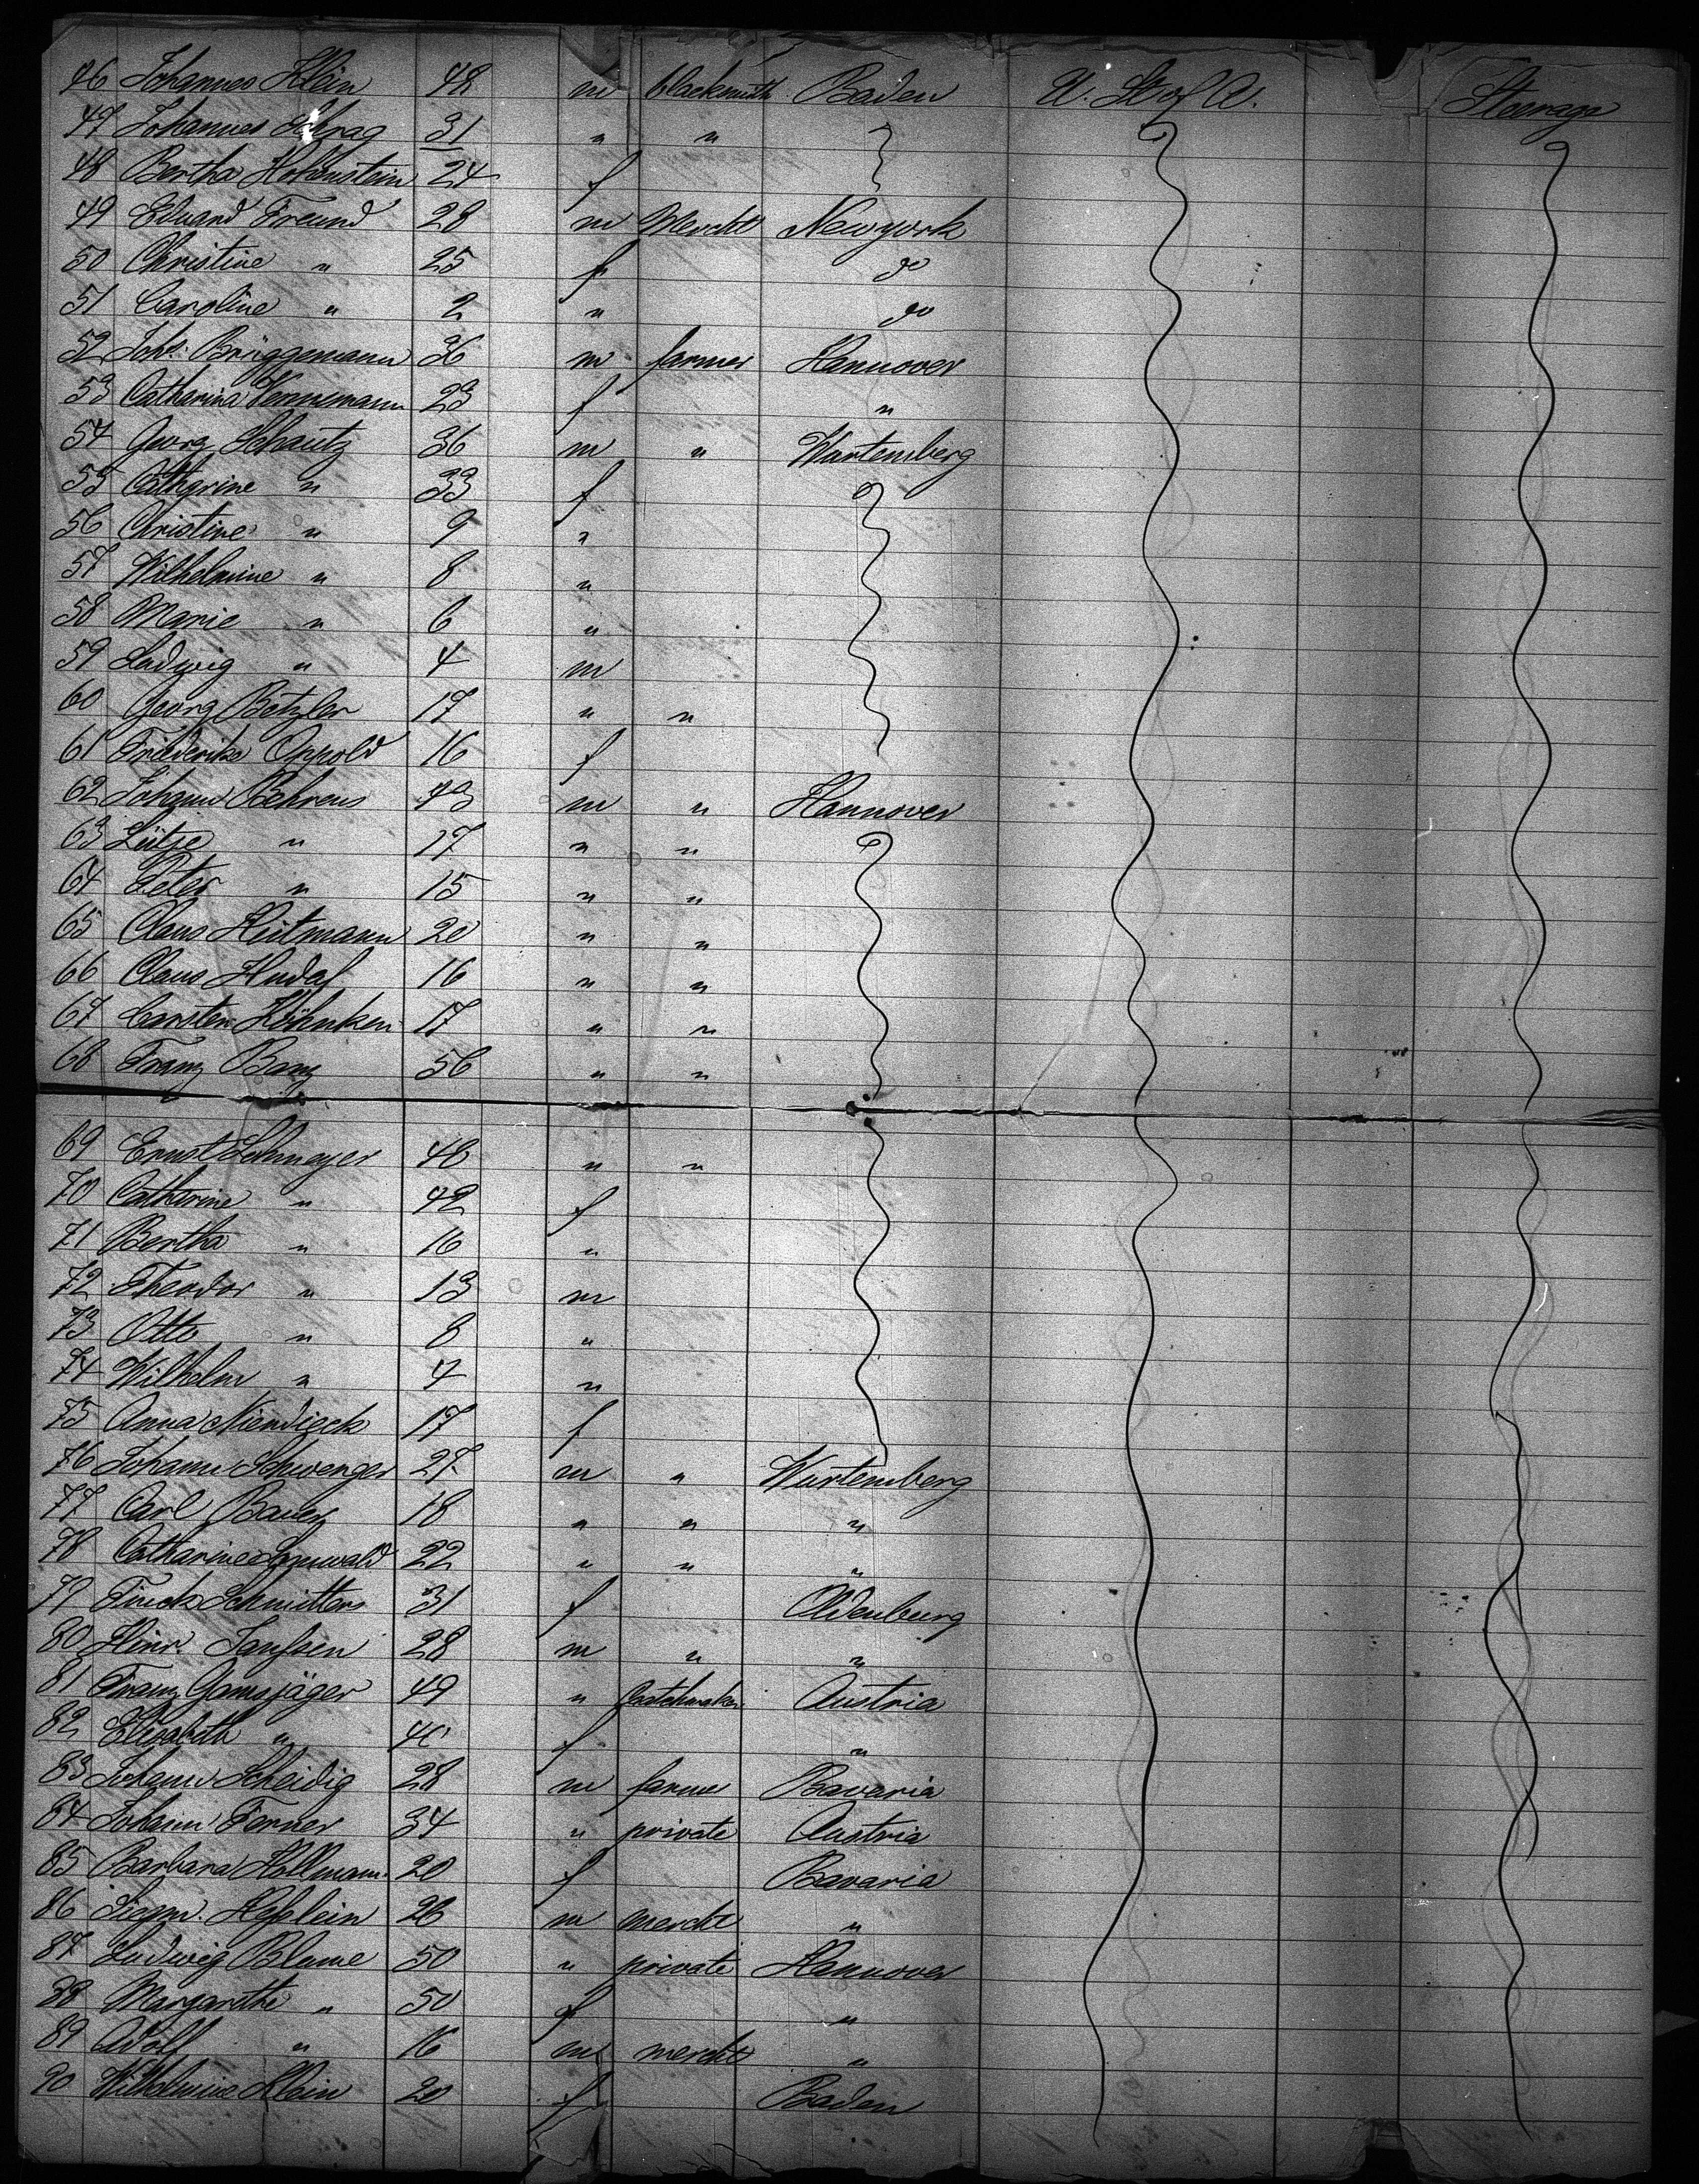 46 Johannes Klein 48 m blacksmith Baden U. St of A. Steerage
47 Johannes 31 " "
48 Bertha Hohenstein 24 f
49 Eduard Freund 28 m Mercht Newyork
50 Christine " 25 f do
51 Caroline " 2 " do
52 Johs. Brüggemann 36 m farmer Hannover
53 Catharina 23 f "
54 Georg Schautz 36 m " Wurtemberg
55 Cathgrine " 33 f
56 Christine " 9 "
57 Wilhelmine " 8 "
58 Marie " 6 "
59 Ludwig " 4 m
60 Georg Botzler 17 " "
61 Friederike Oppold 16 f
62 Johann Behrens 43 m " Hannover
63 Lütje " 17 " "
64 Peter " 15 " "
65 Claus Heitmann 20 " "
66 Claus Hudaf 16 " "
67 Carsten Höhnken 17 " "
68 Franz Banz 56 " "
69 Ernst Lehmeyer 48 " "
70 Catherine " 42 f
71 Bertha " 16 "
72 Theodor " 13 m
73 Otto " 8 "
74 Wilhelm " 4 "
75 Anna Niendieck 17 f
76 Johann Schwenger 27 m " Wurtemberg
77 Carl Bauer 18 " " "
78 Catharine 22 " " "
79 Schmitters 31 f Oldenburg
80 Hinr. Janssen 28 m " "
81 Franz Gamsjäger 49 " Austria
82 Elisabeth " 40 f "
83 Johann Scheidig 28 m farmer Bavaria
84 Johann Ferner 34 " private Austria
85 Barbara Hollmann 20 f Bavaria
86 Siegm. Heßlein 26 m mercht "
87 Ludwig Blume 50 " private Hannover
88 Margarethe " 50 f "
89 Adolf " 16 m mercht "
90 Wilhelmine Klein 20 f Baden